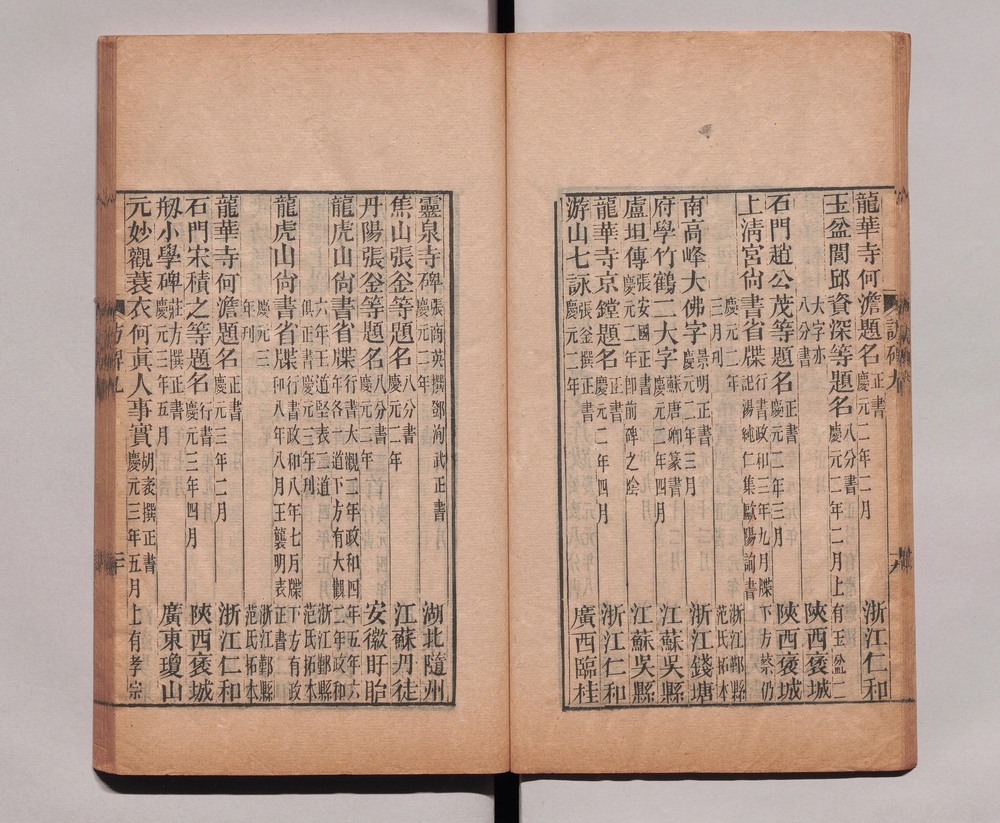 龍華寺何澹題名 正書 慶元二年二月 浙江仁和
玉盆閭邱資深等題名 八分書 慶元二年二月上有玉盆二
大字亦八分書 陝西褒城
石門趙公茂等題名 正書 慶元二年三月 陝西褒城
上清宮尙書省牒 行書政和三年九月牒下方蔡仍記湯純仁集歐陽詢書
慶元二年三月刊 浙江鄞縣范氏拓本
南高峰大佛字 景明正書 慶元二年三月 浙江錢塘
府學竹鶴二大字 蘇唐卿篆書 慶元二年四月 江蘇吳縣
盧坦傳 張安國正書 慶元二年卽前碑之陰 江蘇吳縣
龍華寺京鏜題名 正書 慶元二年四月 浙江仁和
游山七詠 張釜撰正書 慶元二年 廣西臨桂
靈泉寺碑 張南英撰鄧洵武正書 慶元二年 湖北隨州
焦山張釜等題名 八分書 慶元二年 江蘇丹徒
丹陽張釜等題名 八分書 慶元二年 安徽盱眙
龍虎山尙書省牒 行書大觀二年政和四年五年六年各一道下方有大觀二年政和
六年王道堅表二道俱正書慶元二年刊 浙江鄞縣范氏拓本
龍虎山尙書省牒 行書政和八年七月牒下方有政和八年八月王襲明表正書
慶元三年刊 浙江鄞縣范氏拓本
龍華寺何澹題名 正書 慶元三年二月 浙江仁和
石門宋積之等題名 行書 慶元三年四月 陝西褒城
剏小學碑 莊方撰正書 慶元三年五月 廣東瓊山
元妙觀蓑衣何眞人事實 胡衮撰正書 慶元三年五月上有孝宗